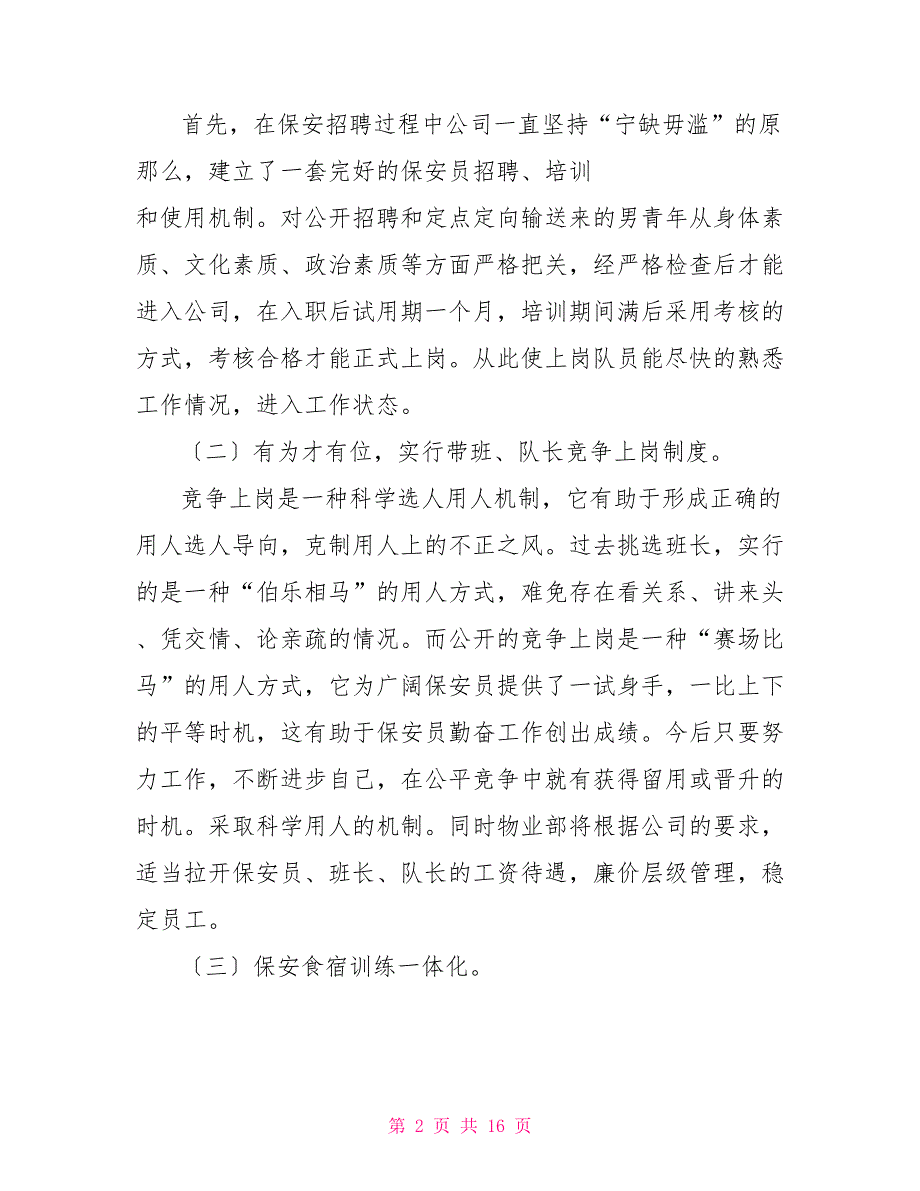 首先，在保安招聘过程中公司一直坚持“宁缺毋滥”的原
那么，建立了一套完好的保安员招聘、培训
和使用机制。对公开招聘和定点定向输送来的男青年从身体素
质、文化素质、政治素质等方面严格把关，经严格检查后才能
进入公司，在入职后试用期一个月，培训期间满后采用考核的
方式，考核合格才能正式上岗。从此使上岗队员能尽快的熟悉
工作情况，进入工作状态。
〔二〕有为才有位，实行带班、队长竞争上岗制度。
竞争上岗是一种科学选人用人机制，它有助于形成正确的
用人选人导向，克制用人上的不正之风。过去挑选班长，实行
的是一种“伯乐相马”的用人方式，难免存在看关系、讲来头
、凭交情、论亲疏的情况。而公开的竞争上岗是一种“赛场比
马”的用人方式，它为广阔保安员提供了一试身手，一比上下
的平等时机，这有助于保安员勤奋工作创出成绩。今后只要努
力工作，不断进步自己，在公平竞争中就有获得留用或晋升的
时机。采取科学用人的机制。同时物业部将根据公司的要求，
适当拉开保安员、班长、队长的工资待遇，廉价层级管理，稳
定员工。
〔三〕保安食宿训练一体化。
第 2 页 共 16 页